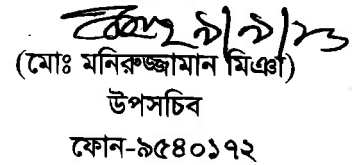 ৯/৯/১৩
(মোঃ মনিরুজ্জামান মিঞা)
উপসচিব
ফোন-৯৫৪০১৭২